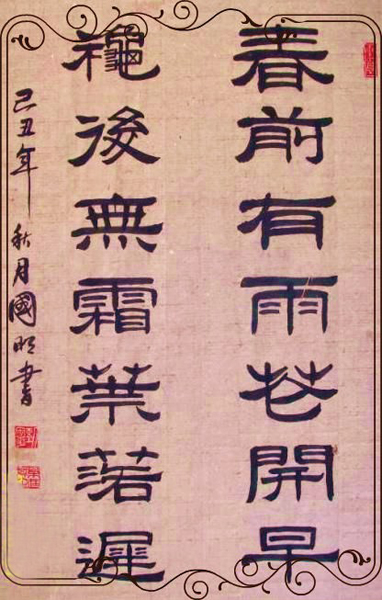 春前有雨花開早
穐後無霜葉落遲
己丑年秋月國明書